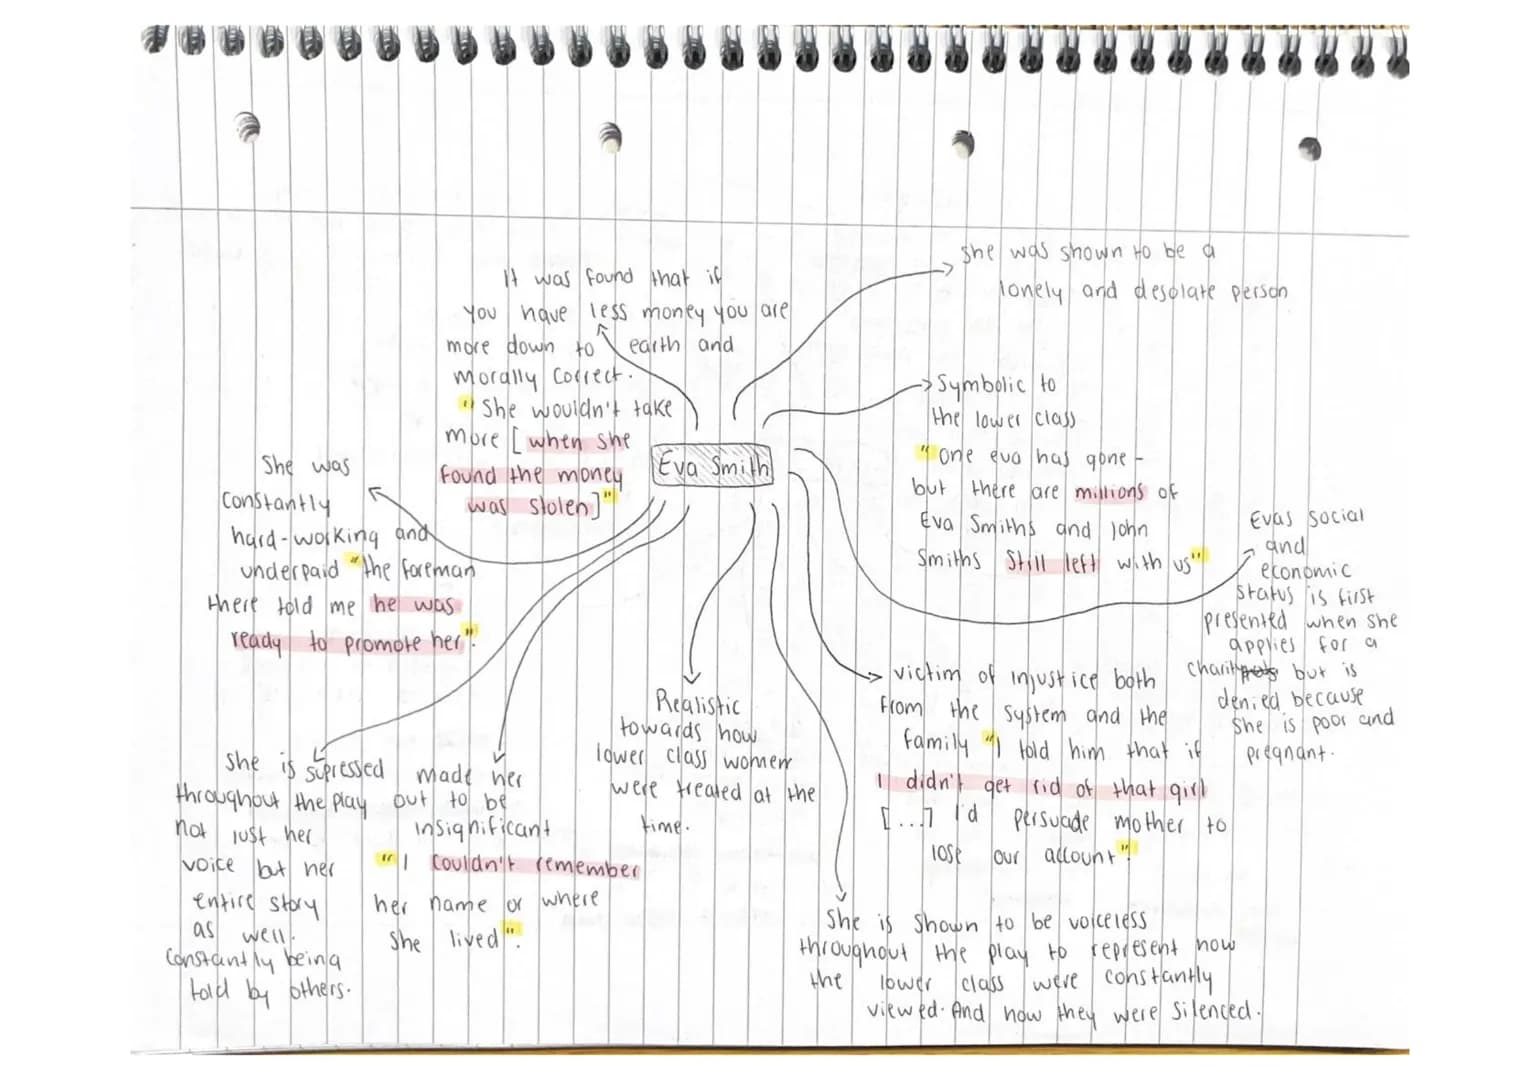 She was shown to be a
lonely and desolate person
It was found that if
you have less money you are
more down to earth and
morally correct.
" She wouldn't take
more [when she
found the money
was stolen]"
Eva Smith
Symbolic to
the lower class
" one eva has gone -
but there are millions of
Eva Smiths and John
Smiths Still left with us"
She was
constantly
hard-working and
underpaid "the foreman
there told me he was
ready to promote her".
Evas Social
and
economic
status is first
presented when she
applies for a
charity but is
denied because
She is poor and
pregnant.
victim of injustice both
from the system and the
family "I told him that if
I didn't get rid of that girl
[...] I'd persuade mother to
lose our account".
Realistic
towards how
lower class women
were treated at the
time.
She is supressed
throughout the play
not just her
voice but her
entire story
as well.
Constantly being
told by others.
made her
out to be
insignificant
"I couldn't remember
her name or where
She lived".
She is Shown to be voiceless
throughout the play to represent how
the lower class were constantly
viewed. And how they were Silenced.